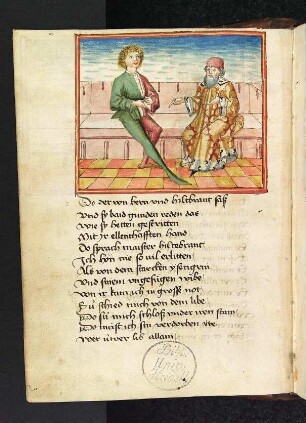 Do der von bern vnd hiltbrant sass
Vnd sy baid gunden reden das
Wie sy hetten gestritten
Mit ir ellenthafften hand
Do sprach maister hiltebrant
Ich hon nie so vil erlitten
Als von dem starcken ysengrin
Vnd sinem ungefugen wibe
Von ir kam ich in grosse not
E su schied mich von dem libe
Do su mich schloss under iren
Do must ich sin verdorben
Wer